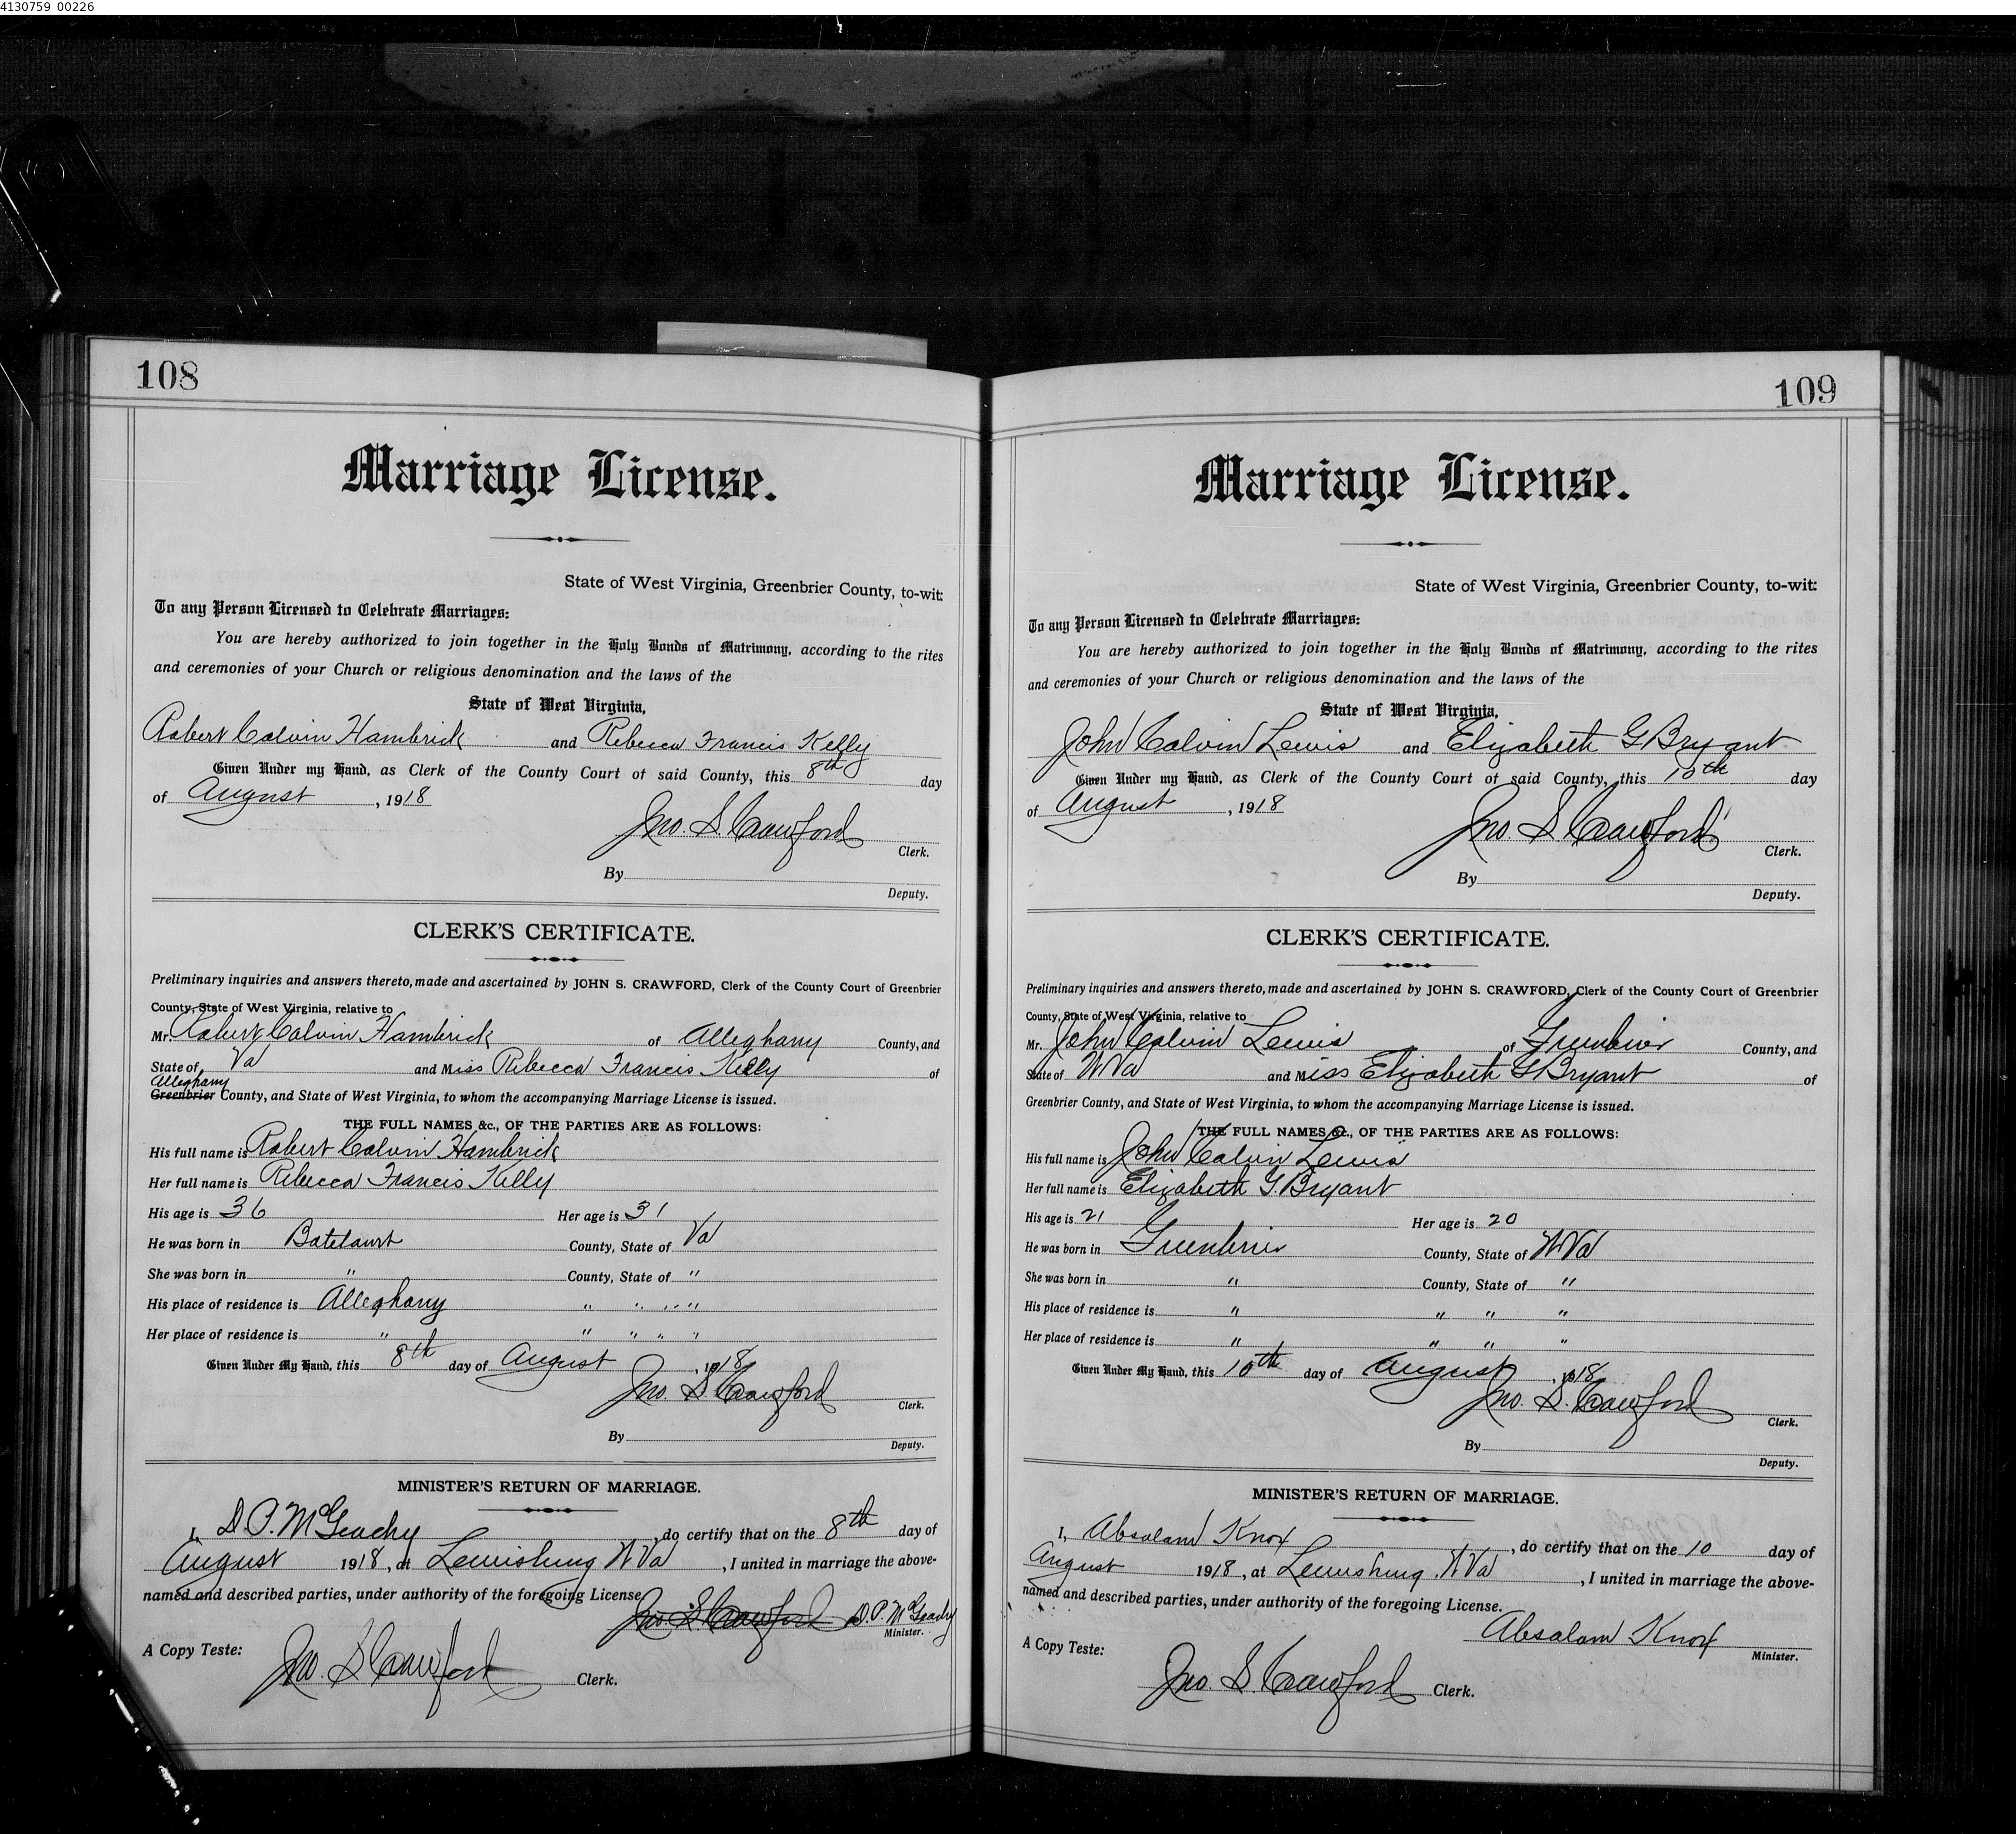 4130759_00226
108
Marriage License.
State of West Virginia, Greenbrier County, to-wit:
To any Person Licensed to Celebrate Marriages:
You are hereby authorized to join together in the Holy Bonds of Matrimony, according to the rites
and ceremonies of your Church or religious denomination and the laws of the
State of West Virginia,
Robert Calvin Hambrick and Rebecca Francis Kelly
Given Under my Hand, as Clerk of the County Court of said County, this 8th day
of August, 1918
Jno. S. Crawford
Clerk.
By
Deputy.
CLERK'S CERTIFICATE.
Preliminary inquiries and answers thereto, made and ascertained by JOHN S. CRAWFORD, Clerk of the County Court of Greenbrier
County, State of West Virginia, relative to
Mr. Robert Calvin Hambrick of Alleghany County, and
State of Va and Miss Rebecca Francis Kelly of
Alleghany
Greenbrier County, and State of West Virginia, to whom the accompanying Marriage License is issued.
THE FULL NAMES &c., OF THE PARTIES ARE AS FOLLOWS:
His full name is Robert Calvin Hambrick
Her full name is Rebecca Francis Kelly
His age is 36 Her age is 31
He was born in Botetourt County, State of Va
She was born in " County, State of "
His place of residence is Alleghany " " " "
Her place of residence is " " " " "
Given Under My Hand, this 8th day of August, 1918
Jno. S. Crawford
Clerk.
By
Deputy.
MINISTER'S RETURN OF MARRIAGE.
I, D. P. McGeachy, do certify that on the 8th day of
August 1918, at Lewisburg W Va, I united in marriage the above-
named and described parties, under authority of the foregoing License.
Jno S Crawford D. P. McGeachy
Minister.
A Copy Teste:
Jno. S. Crawford Clerk.
109
Marriage License.
State of West Virginia, Greenbrier County, to-wit:
To any Person Licensed to Celebrate Marriages:
You are hereby authorized to join together in the Holy Bonds of Matrimony, according to the rites
and ceremonies of your Church or religious denomination and the laws of the
State of West Virginia,
John Calvin Lewis and Elizabeth G Bryant
Given Under my Hand, as Clerk of the County Court of said County, this 10th day
of August, 1918
Jno. S. Crawford
Clerk.
By
Deputy.
CLERK'S CERTIFICATE.
Preliminary inquiries and answers thereto, made and ascertained by JOHN S. CRAWFORD, Clerk of the County Court of Greenbrier
County, State of West Virginia, relative to
Mr. John Calvin Lewis of Greenbrier County, and
State of W Va and Miss Elizabeth G Bryant of
Greenbrier County, and State of West Virginia, to whom the accompanying Marriage License is issued.
THE FULL NAMES &c., OF THE PARTIES ARE AS FOLLOWS:
His full name is John Calvin Lewis
Her full name is Elizabeth G. Bryant
His age is 21 Her age is 20
He was born in Greenbrier County, State of W Va
She was born in " County, State of "
His place of residence is " " " "
Her place of residence is " " " "
Given Under My Hand, this 10th day of August, 1918
Jno. S. Crawford
Clerk.
By
Deputy.
MINISTER'S RETURN OF MARRIAGE.
I, Absalam Knox, do certify that on the 10 day of
August 1918, at Lewisburg, W Va, I united in marriage the above-
named and described parties, under authority of the foregoing License.
Absalam Knox
Minister.
A Copy Teste:
Jno. S. Crawford Clerk.